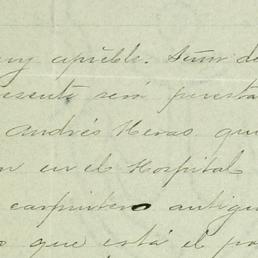 muy apreble. Señor de
presente será puesta
Andrés Heras que
en el Hospital
carpintero antigu
que está el po